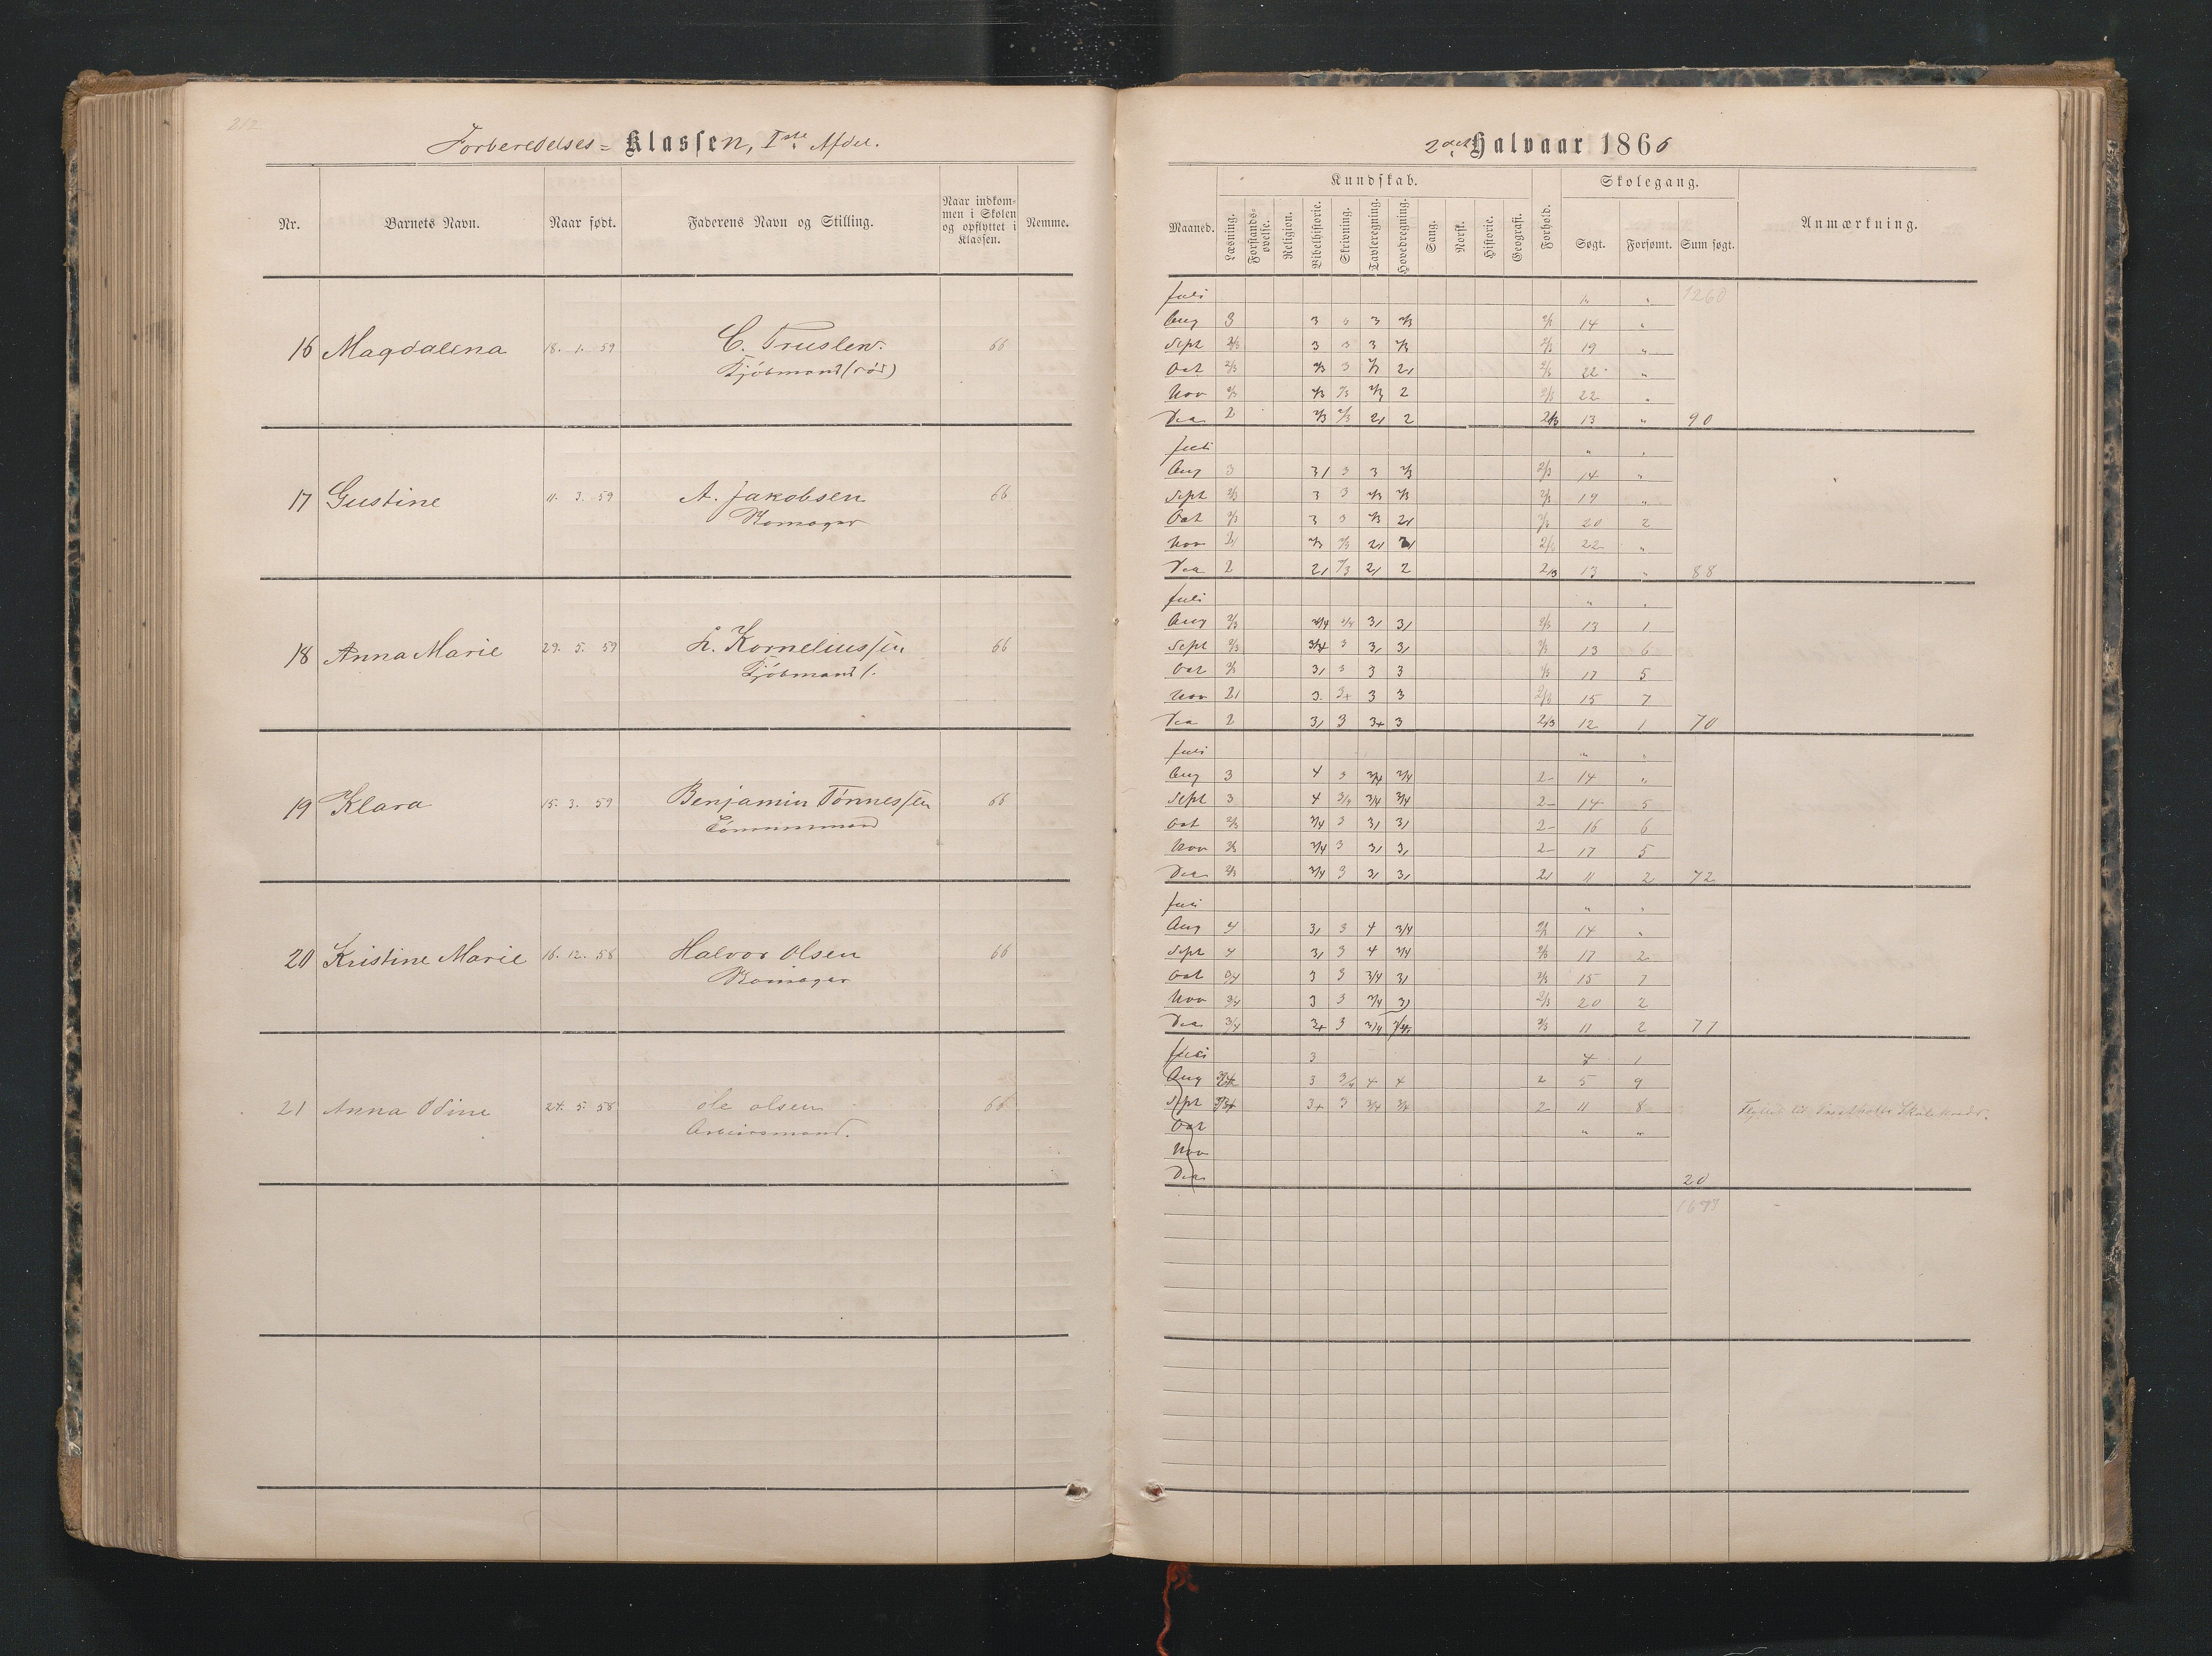 212
Forberedelses- Klassen, Iste Afdel.
Nr. Barnets Navn. Naar født. Faderens Navn og Stilling. Naar indkommen i Skolen og opflyttet i Klassen. Nemme.
16 Magdalena 18. 1. 59 C. Truslew. 66
Kjøbmand (død)
17 Gustine 11. 3. 59 A. Jakobsen 66
18 Anna Marie 29. 5. 59 L. Korneliussen 66
Kjøbmand
19 Klara 15. 3. 59 Benjamin Tønnessen 66
Tømmermand
20 Kristine Marie 16. 12. 58 Halvor Olsen 66
21 Anna Odine 24. 5. 58 Ole Olsen 66
Arbeidsmand.
2det Halvaar 1866
Kundskab. Skolegang.
Maaned. Læsning. Forstands-øvelse. Religion. Bibelhistorie. Skrivning. Tavleregning. Hovedregning. Sang. Norsk. Historie. Geografi. Forhold. Søgt. Forsømt. Sum søgt. Anmærkning.
Juli " " 1260
Aug 3 3 3 3 2/3 2/3 14 "
Sept 2/3 3 3 3 2/3 2/3 19 "
Oct 2/3 2/3 3 2/3 21 2/3 22 "
Nov 2/3 2/3 2/3 2/3 2 2/3 22 "
Dec 2 2/3 2/3 21 2 2/3 13 " 90
Juli " "
Aug 3 31 3 3 2/3 2/3 14 "
Sept 2/3 3 3 2/3 2/3 2/3 19 "
Oct 2/3 3 3 2/3 21 2/3 20 2
Nov 21 2/3 2/3 21 21 2/3 22 "
Dec 2 21 2/3 21 2 2/3 13 " 88
Juli " "
Aug 2/3 3/4 3/4 31 31 2/3 13 1
Sept 2/3 3/4 3 31 31 2/3 13 6
Oct 2/3 31 3 3 3 2/3 17 5
Nov 21 3 3+ 3 3 2/3 15 7
Dec 2 31 3 3+ 3 2/3 12 1 70
Juli " "
Aug 3 4 3 3/4 3/4 2- 14 "
Sept 3 4 3/4 3/4 3/4 2- 14 5
Oct 2/3 3/4 3 31 31 2- 16 6
Nov 2/3 3/4 3 31 31 2- 17 5
Dec 2/3 3/4 3 31 31 21 11 2 72
Juli " "
Aug 4 31 3 4 3/4 2/3 14 "
Sept 4 31 3 4 3/4 2/3 17 2
Oct 3/4 3 3 3/4 31 2/3 15 7
Nov 3/4 3 3 3/4 31 2/3 20 2
Dec 3/4 3+ 3 3/4 3/4 2/3 11 2 77
Juli 3 4 1
Aug 3/4 3 3/4 4 4 2 5 9
Sept 3+ 3 3/4 3/4 2 11 8
Oct " "
Nov
Dec 20